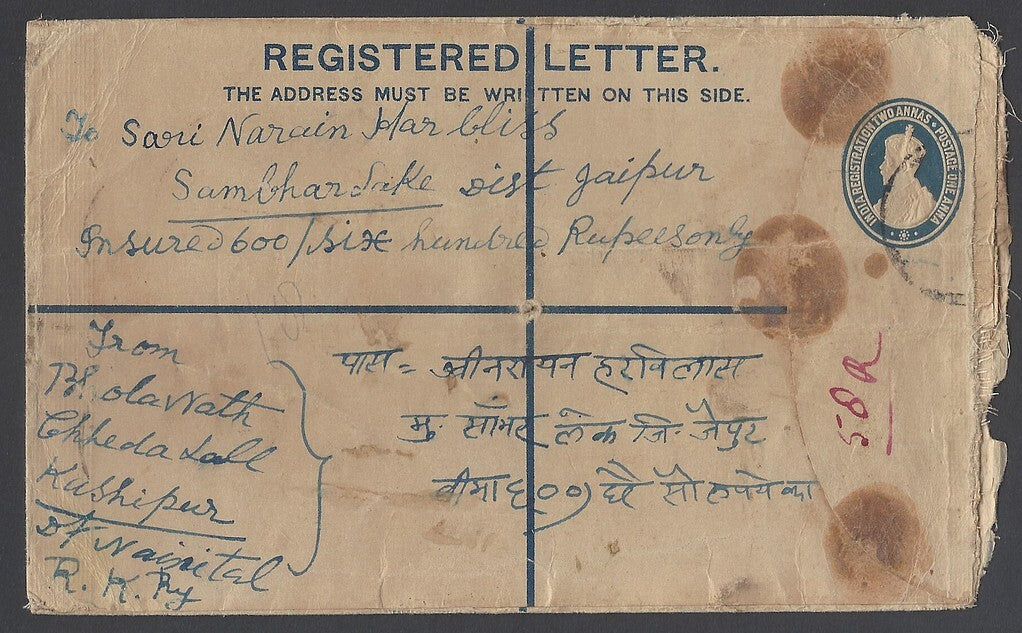 REGISTERED LETTER.
THE ADDRESS MUST BE WRITTEN ON THIS SIDE.
INDIA REGISTRATION TWO ANNAS • POSTAGE ONE ANNA
To Sari Narain Harbliss
Sambhar Lake Dist Jaipur
Insured 600/ six hundred Rupees only
From
Bhola Nath
Chheda Lall
Kashipur
Dt Nainital
R. K. Ry
पास = श्रीनरायन हरविलास
मु. साँभर लेक जि. जैपुर
वीमा ६००) छै सौ रुपये का
58 R